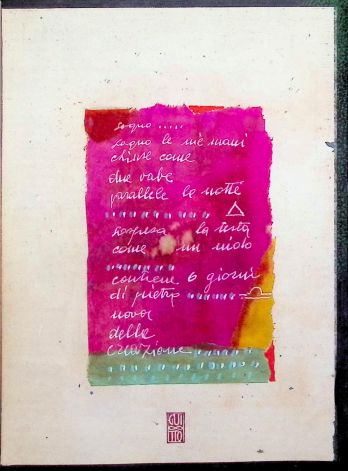 sogno .....
sogno le mie mani
chiuse come
due rabe
parallele la notte
sospesa la testa
come un nido
contiene 6 giorni
di pietra
nova
della
creazione
GUI
TTO